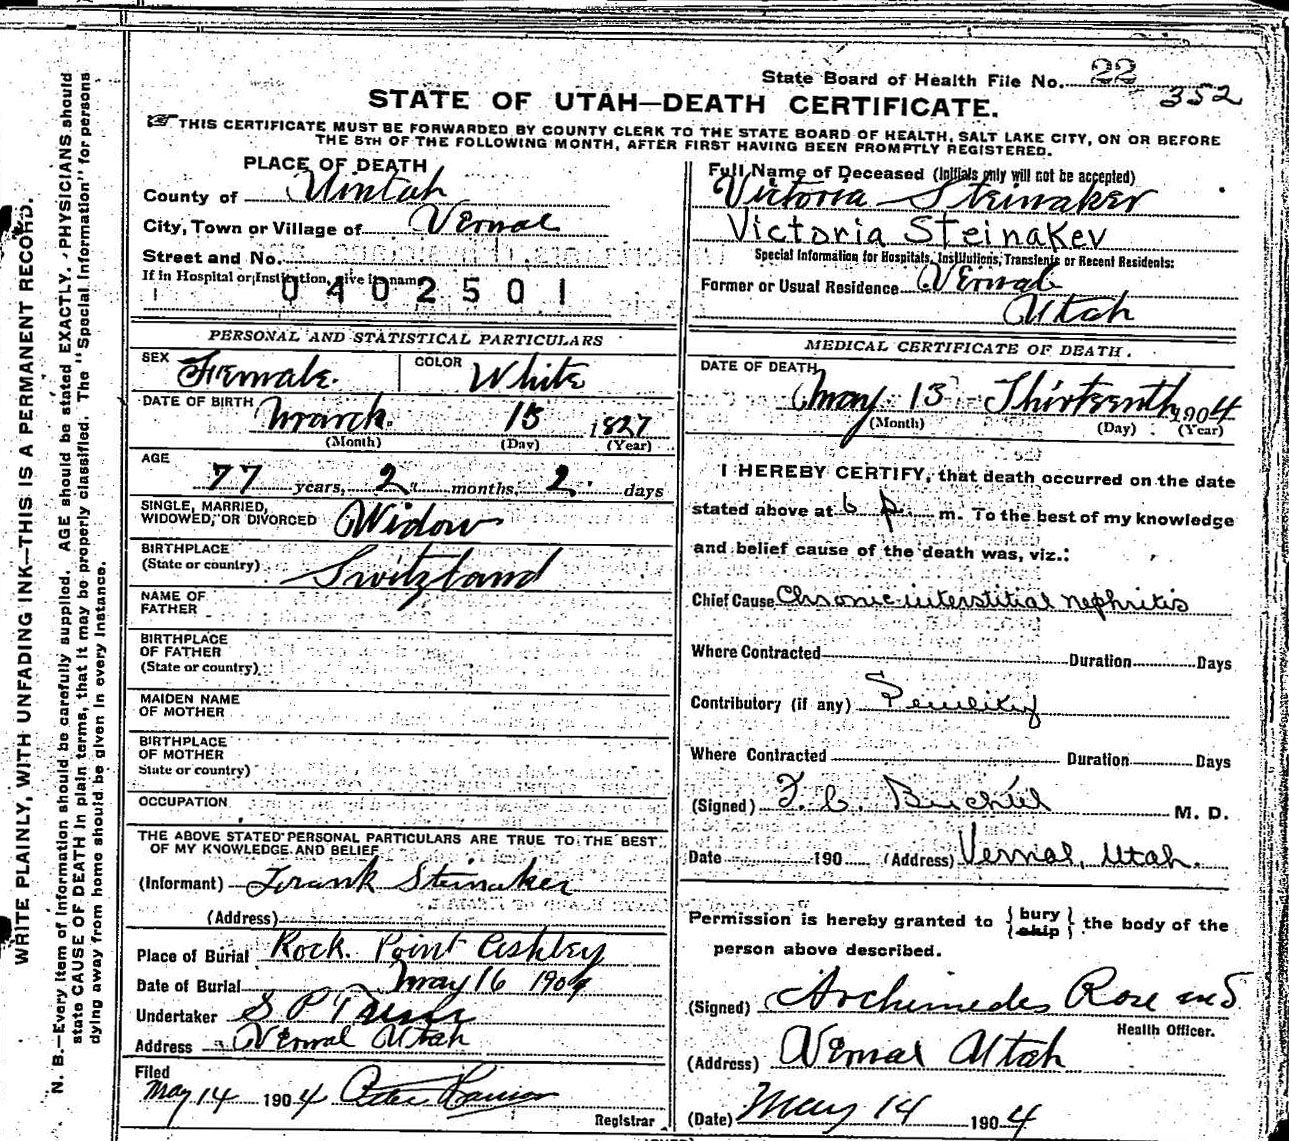 State Board of Health File No. 22
352
STATE OF UTAH—DEATH CERTIFICATE.
THIS CERTIFICATE MUST BE FORWARDED BY COUNTY CLERK TO THE STATE BOARD OF HEALTH, SALT LAKE CITY, ON OR BEFORE
THE 5TH OF THE FOLLOWING MONTH, AFTER FIRST HAVING BEEN PROMPTLY REGISTERED.
PLACE OF DEATH
County of Uintah
City, Town or Village of Vernal
Street and No.
If in Hospital or Institution, give its name
0402501
Full Name of Deceased (Initials only will not be accepted)
Victoria Steinaker
Victoria Steinaker
Special Information for Hospitals, Institutions, Transients or Recent Residents:
Former or Usual Residence Vernal
Utah
PERSONAL AND STATISTICAL PARTICULARS
SEX Female. COLOR White
DATE OF BIRTH March 15 1827
(Month) (Day) (Year)
AGE
77 years, 2 months, 2 days
SINGLE, MARRIED,
WIDOWED, OR DIVORCED Widow
BIRTHPLACE
(State or country) Switzland
NAME OF
FATHER
BIRTHPLACE
OF FATHER
(State or country)
MAIDEN NAME
OF MOTHER
BIRTHPLACE
OF MOTHER
State or country)
OCCUPATION
THE ABOVE STATED PERSONAL PARTICULARS ARE TRUE TO THE BEST
OF MY KNOWLEDGE AND BELIEF
(Informant) Frank Steinaker
(Address)
Place of Burial Rock Point Ashley
Date of Burial May 16 1904
Undertaker S P
Address Vernal Utah
Filed
May 14 1904
Registrar
MEDICAL CERTIFICATE OF DEATH.
DATE OF DEATH
May 13 Thirteenth 1904
(Month) (Day) (Year)
I HEREBY CERTIFY, that death occurred on the date
stated above at 6 p. m. To the best of my knowledge
and belief cause of the death was, viz.:
Chief Cause Chronic interstitial nephritis
Where Contracted Duration Days
Contributory (if any) Senility
Where Contracted Duration Days
(Signed) F. C. M. D.
Date 190 (Address) Vernal, Utah.
Permission is hereby granted to { bury ship } the body of the
person above described.
(Signed) Archimedes Rose
Health Officer.
(Address) Vernal Utah
(Date) May 14 1904
WRITE PLAINLY, WITH UNFADING INK—THIS IS A PERMANENT RECORD.
N. B.—Every item of information should be carefully supplied. AGE should be stated EXACTLY. PHYSICIANS should
state CAUSE OF DEATH in plain terms, that it may be properly classified. The "Special Information" for persons
dying away from home should be given in every instance.